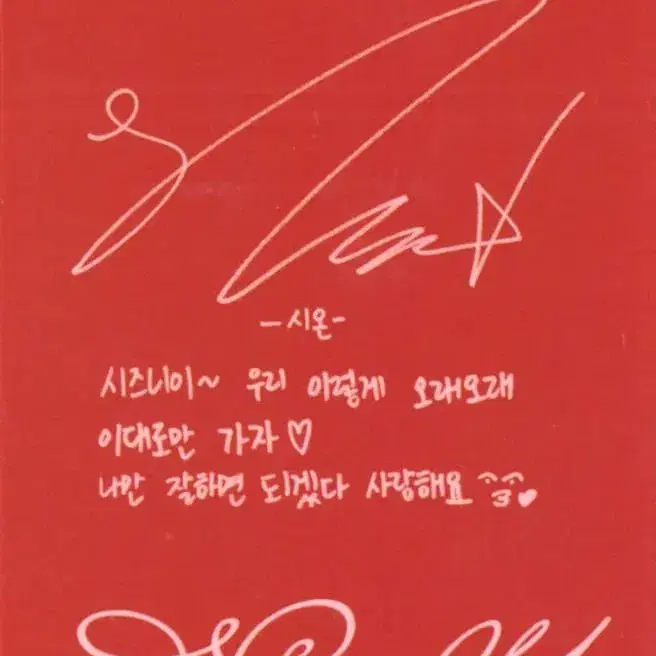 -시온-
시즈니이~ 우리 이렇게 오래오래
이대로만 가자♡
나만 잘하면 되겠다 사랑해요 ^3^♥